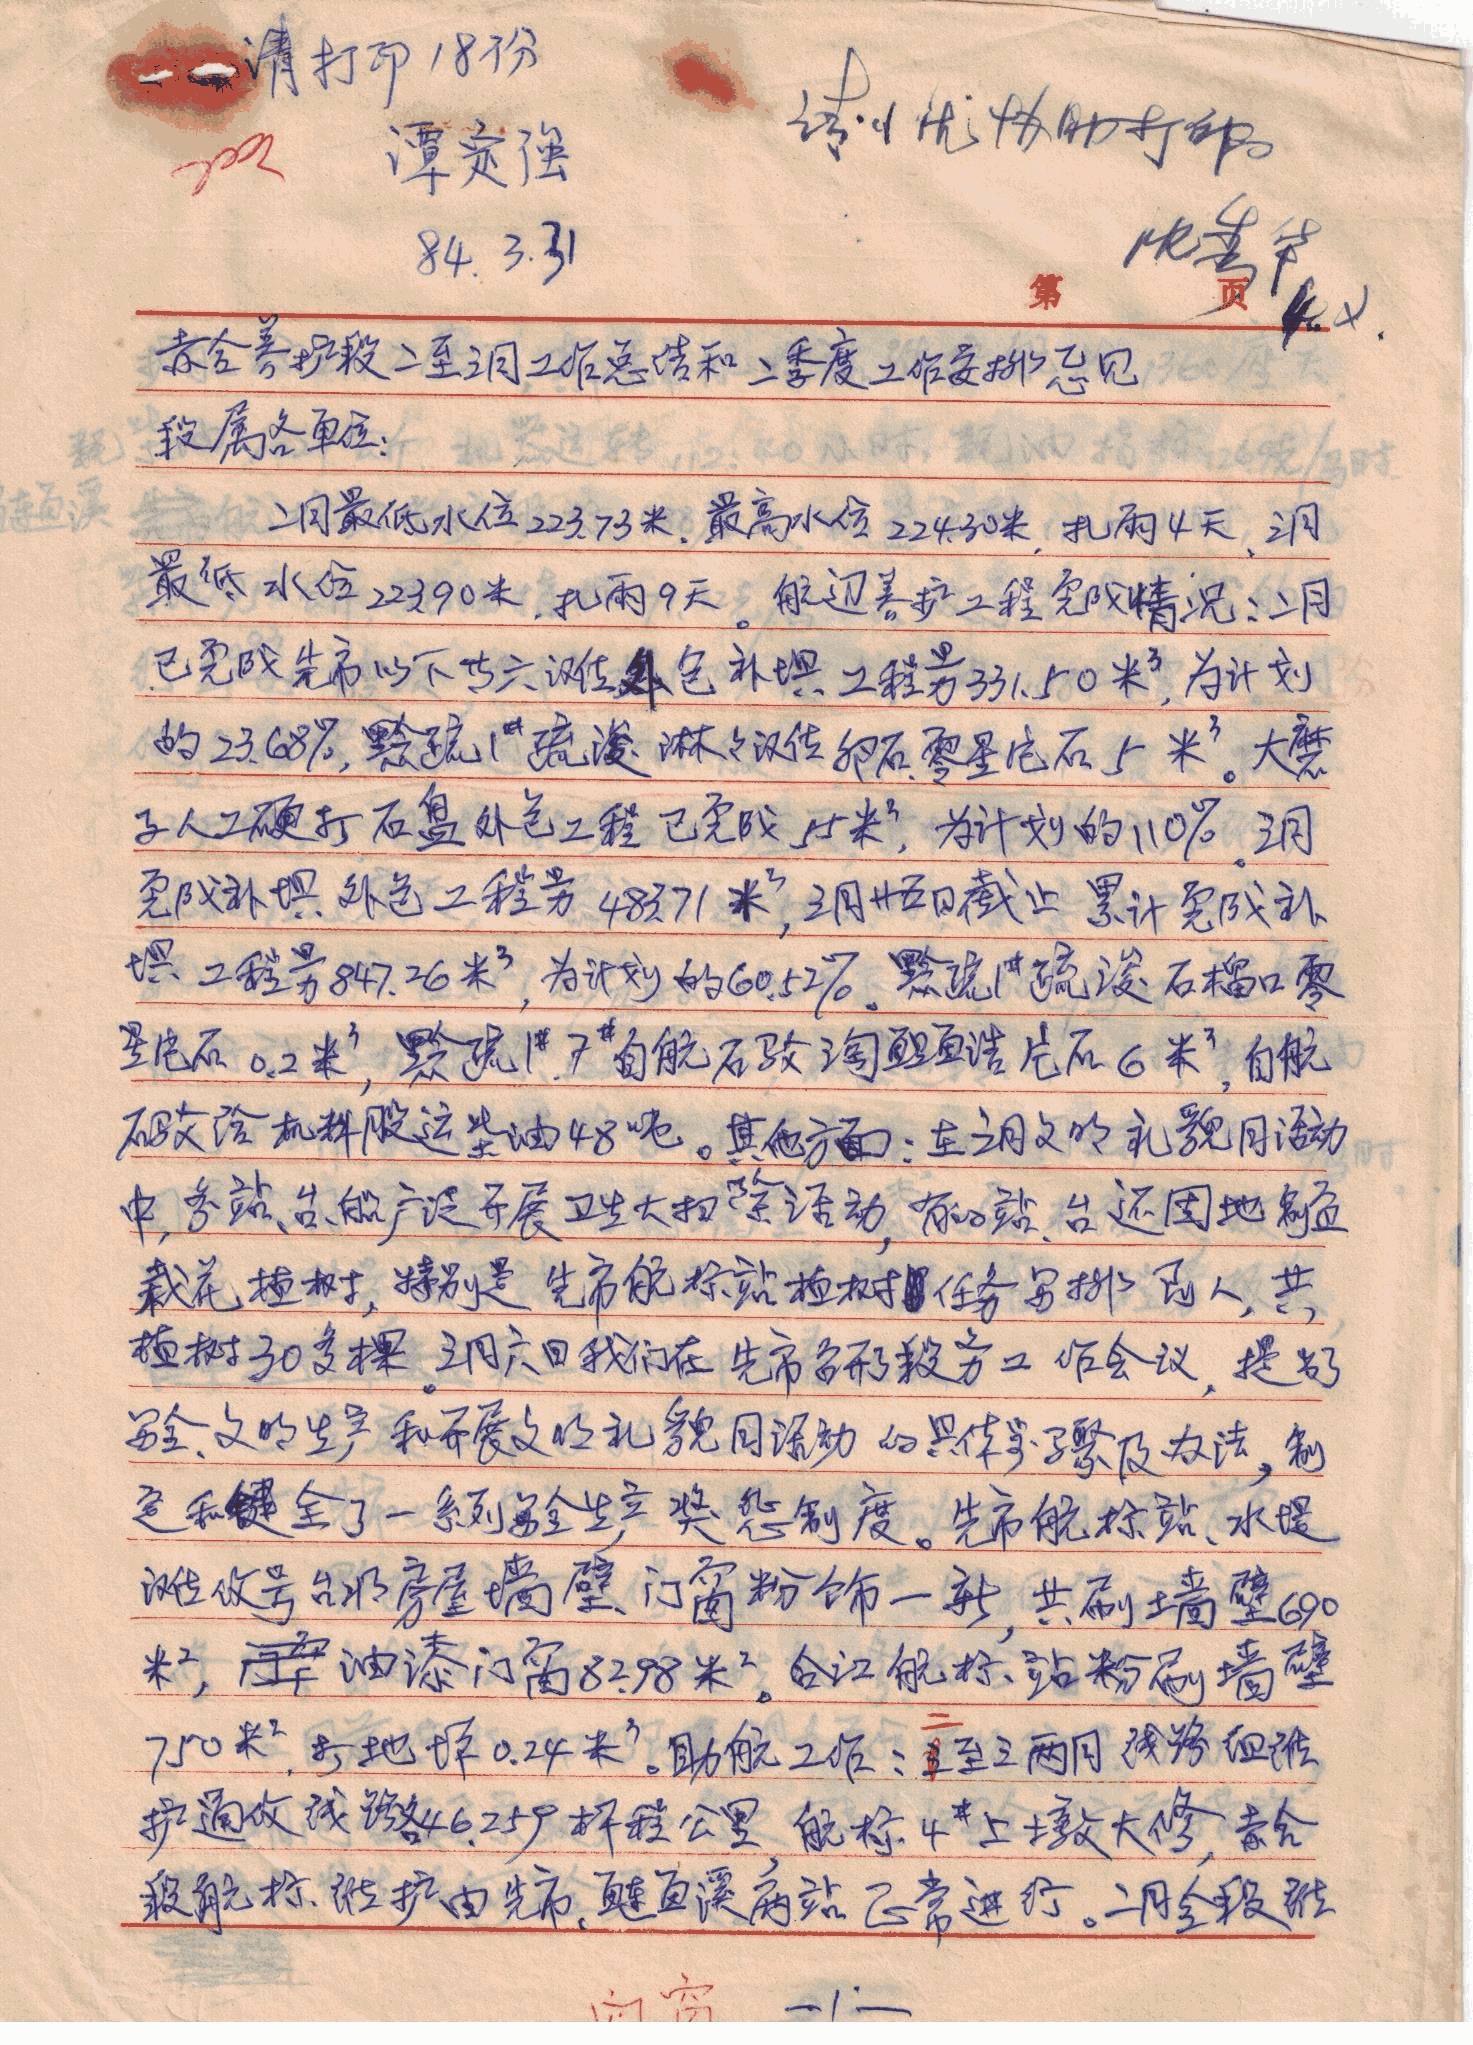 请打印18份
谭定强
84.3.31
请小优协助打印
4.2.
第 页
赤合养护段二至三月工作总结和二季度工作安排意见
段属各单位：
二月最低水位223.73米、最高水位224.30米，扎雨4天、三月
最低水位223.90米，扎雨9天。航道养护工程完成情况：二月
已完成先市以下共六滩外包补坝工程量331.50米³，为计划
的23.68%，黔疏1#疏浚淋滩卵石零星片石5米³。大磨
子人工硬打石盘外包工程已完成55米³，为计划的110%。三月
完成补坝外包工程量483.71米³，三月廿五日截止累计完成补
坝工程量847.26米³，为计划的60.52%。黔疏1#疏浚石榴口零
星片石0.2米³，黔疏1#.7#自航石驳淘鲢鱼浩片石6米³，自航
石驳给机料股运柴油48吨。其他方面：在三月文明礼貌月活动
中，各站、台、船广泛开展卫生大扫除活动，有的站、台还因地制宜
栽花植树，特别是先市航标站植树任务安排到人，共
植树30多棵。三月六日我们在先市召开段务工作会议，提出了
安全、文明生产和开展文明礼貌月活动的具体步骤及办法，制
定和健全了一系列安全生产奖惩制度。先市航标站、水堤
滩信号台将房屋墙壁、门窗粉饰一新，共刷墙壁690
米²，油漆门窗82.98米²。合江航标站粉刷墙壁
750米²，打地坪0.24米³。助航工作：二至三两月线路组维
护通信线路46.259杆程公里，航标4#上墩大修，赤合
段航标维护由先市、鲢鱼溪两站正常进行。二月全段维
门窗 —1—